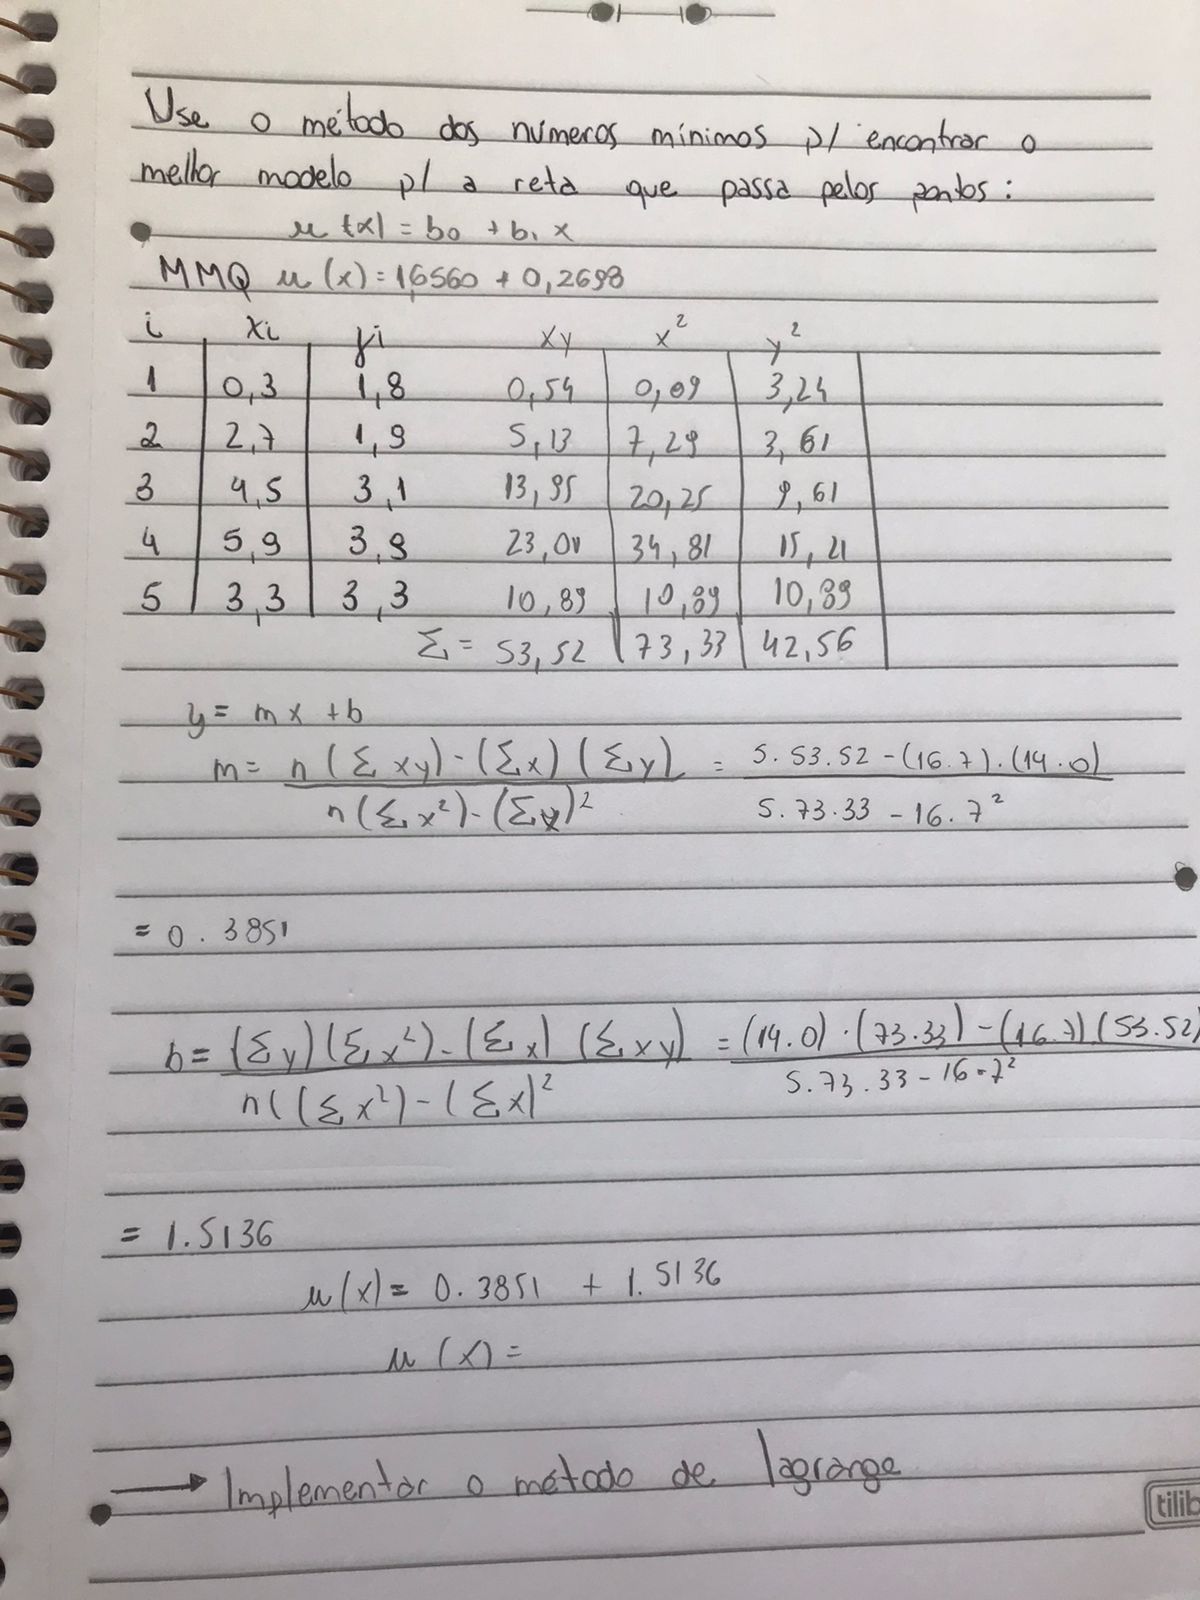 Use o método dos números mínimos p/ encontrar o
melhor modelo p/ a reta que passa pelos pontos:
u (x) = b0 + b1 x
MMQ u (x) = 1,6560 + 0,2698
i xi yi xy x² y²
1 0,3 1,8 0,54 0,09 3,24
2 2,7 1,9 5,13 7,29 3,61
3 4,5 3,1 13,95 20,25 9,61
4 5,9 3,9 23,01 34,81 15,21
5 3,3 3,3 10,89 10,89 10,89
Σ = 53,52 73,33 42,56
y = mx + b
m = n (Σ xy) - (Σx) (Σy) / n (Σ x²) - (Σx)² = 5.53.52 - (16.7).(14.0) / 5.73.33 - 16.7²
= 0.3851
b = (Σy) (Σx²) - (Σx) (Σxy) / n ((Σx²) - (Σx)² = (14.0) · (73.33) - (16.7) (53.52) / 5.73.33 - 16.7²
= 1.5136
u (x) = 0.3851 + 1.5136
u (x) =
→ Implementar o método de lagrange
tilib